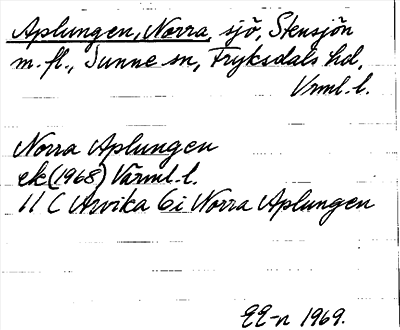 Aplungen, Norra, sjö, Stensjön
m. fl., Sunne sn, Fryksdals hd,
Vrml. l.
Norra Aplungen
ek (1968) Värml. l.
11 C Arvika 6i Norra Aplungen
EE-n 1969.